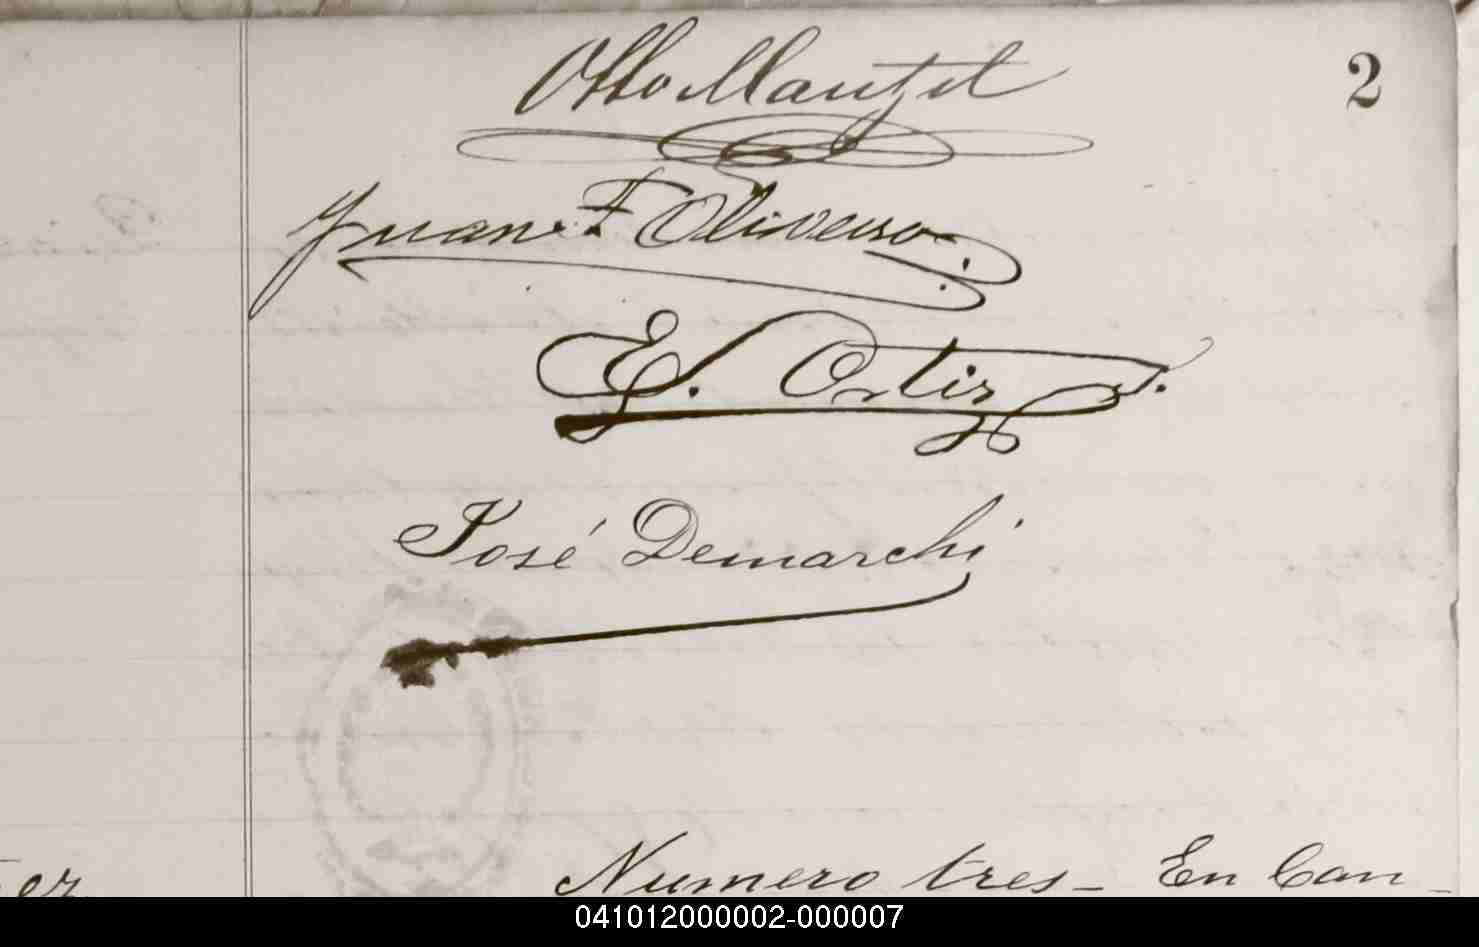 2
Otto Mantzel
Juan F Oliveiro
E. Ortiz
José Demarchi
Numero tres_ En Can_
ez
041012000002-000007